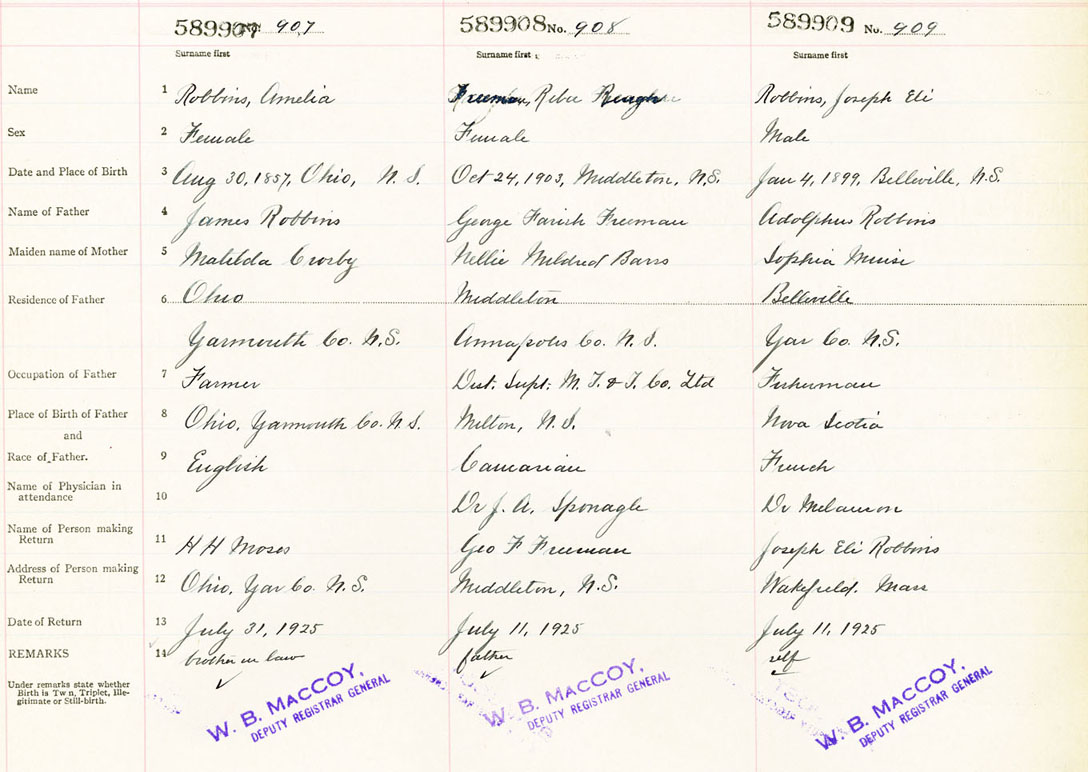 589907 No. 907
589908 No. 908
589909 No. 909
Surname first
Surname first
Surname first
Name 1 Robbins, Amelia
Freeman, Reagh
Robbins, Joseph Eli
Sex 2 Female
Female
Male
Date and Place of Birth 3 Aug 30, 1857, Ohio, N. S.
Oct 24, 1903, Middleton, N.S.
Jan 4, 1899, Belleville, N.S.
Name of Father 4 James Robbins
George Farish Freeman
Adolphus Robbins
Maiden name of Mother 5 Matilda Crosby
Nellie Mildred Barss
Sophia Muise
Residence of Father 6 Ohio
Middleton
Belleville
Yarmouth Co. N.S.
Annapolis Co. N. S.
Yar Co. N.S.
Occupation of Father 7 Farmer
Dist. Supt. M. T. & T. Co. Ltd
Fisherman
Place of Birth of Father 8 Ohio, Yarmouth Co. N. S.
Milton, N. S.
Nova Scotia
and
Race of Father. 9 English
French
Name of Physician in
attendance 10
Dr J. A. Sponagle
Dr Melanson
Name of Person making
Return 11 H H Moses
Geo F Freeman
Joseph Eli Robbins
Address of Person making
Return 12 Ohio, Yar Co. N.S.
Middleton, N.S.
Wakefield. Mass
Date of Return 13 July 31, 1925
July 11, 1925
July 11, 1925
REMARKS 14 brother in law
father
self
Under remarks state whether
Birth is Tw n, Triplet, Ille-
gitimate or Still-birth.
W. B. MACCOY,
DEPUTY REGISTRAR GENERAL
W. B. MACCOY,
DEPUTY REGISTRAR GENERAL
W. B. MACCOY,
DEPUTY REGISTRAR GENERAL